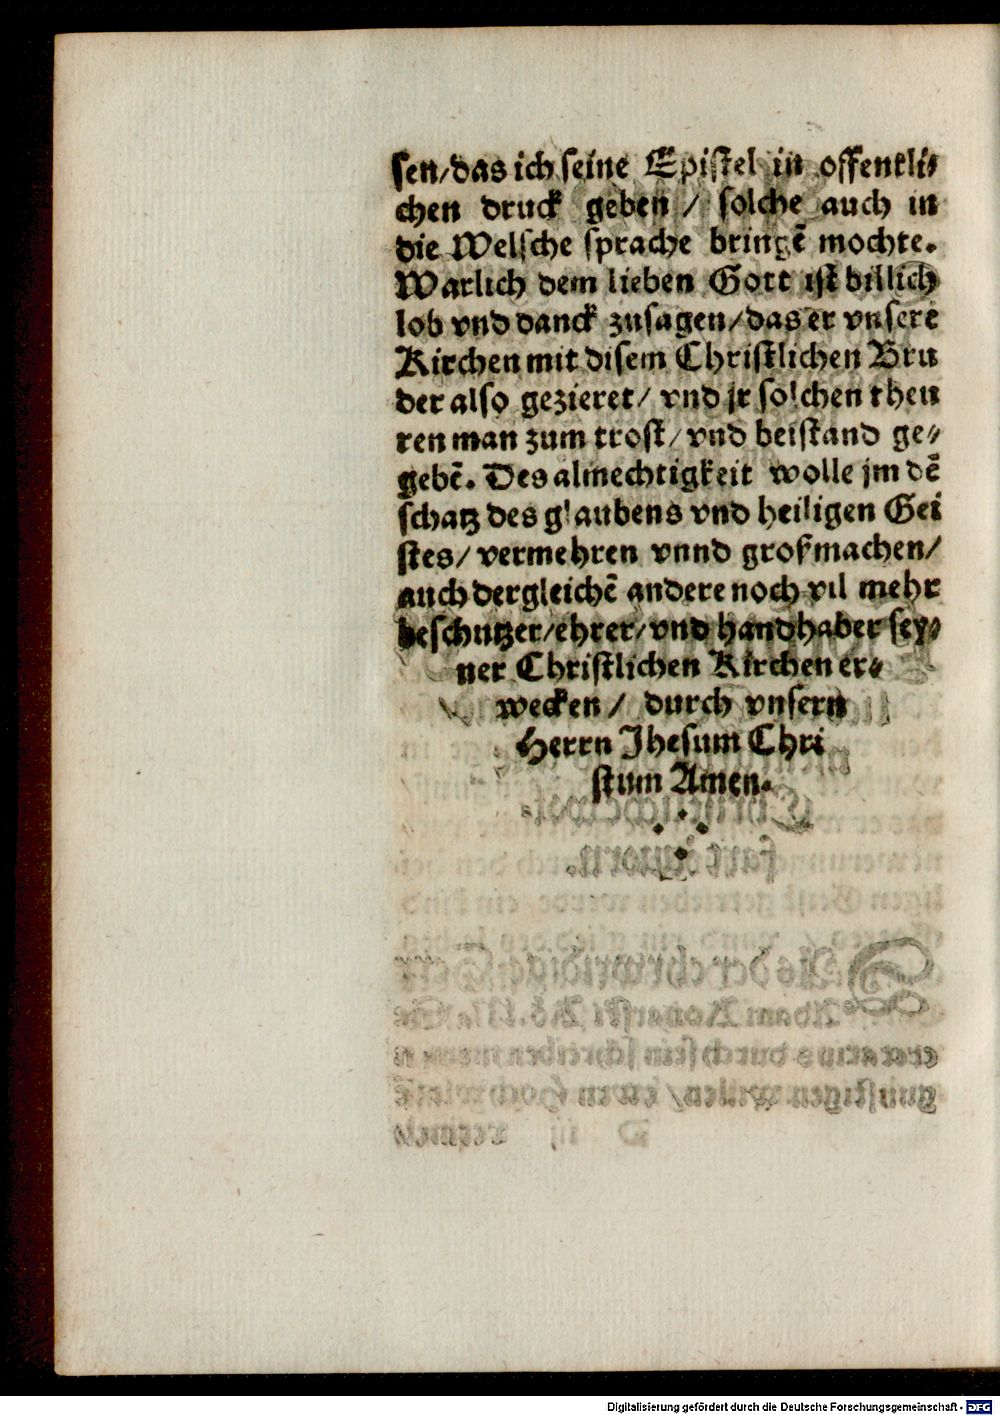 sen/das ich seine Epistel in offentli⸗
chen druck geben / solche auch in
die Welsche sprache bringē mochte.
Warlich dem lieben Gott ist billich
lob vnd danck zusagen/das er vnsere
Kirchen mit disem Christlichen Bru
der also gezieret/ vnd jr solchen theu
ren man zum trost/vnd beistand ge⸗
gebē. Des almechtigkeit wolle jm dē
schatz des glaubens vnd heiligen Gei
stes/ vermehren vnnd großmachen/
auch dergleichē andere noch vil mehr
beschutzer/ehrer/vnd handhaber sey⸗
ner Christlichen Kirchen er⸗
wecken/ durch vnsern
Herrn Jhesum Chri
stum Amen.
Digitalisierung gefördert durch die Deutsche Forschungsgemeinschaft - DFG